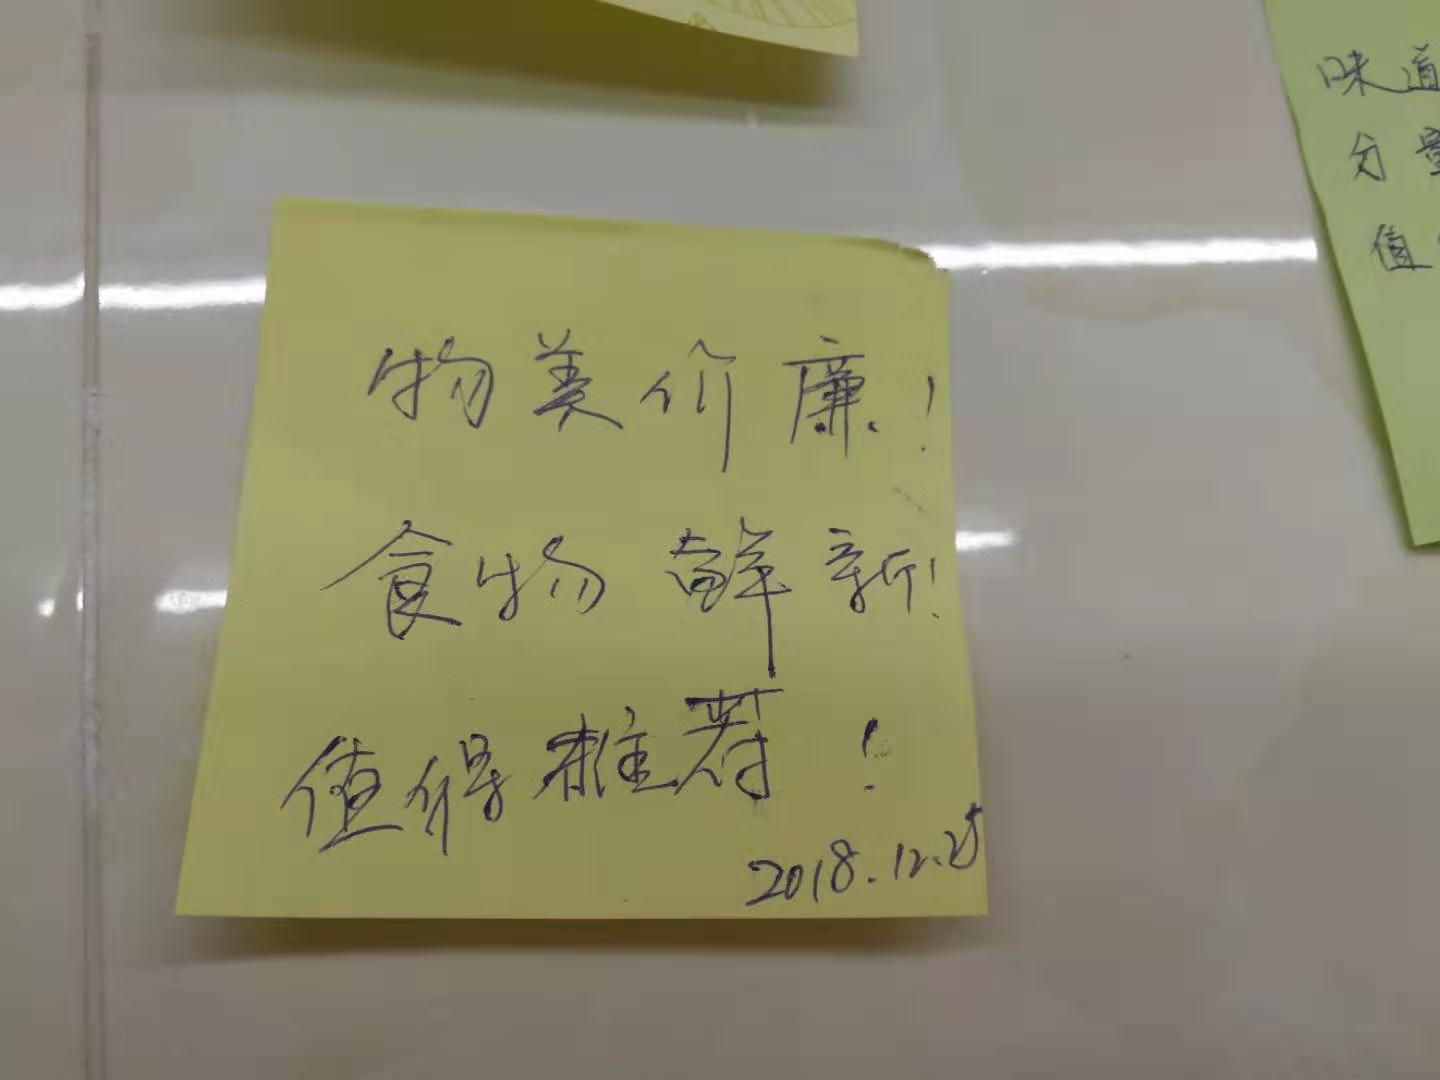 物美价廉!
食物鲜新!
值得推荐!
2018.12.25
味道
分量
值